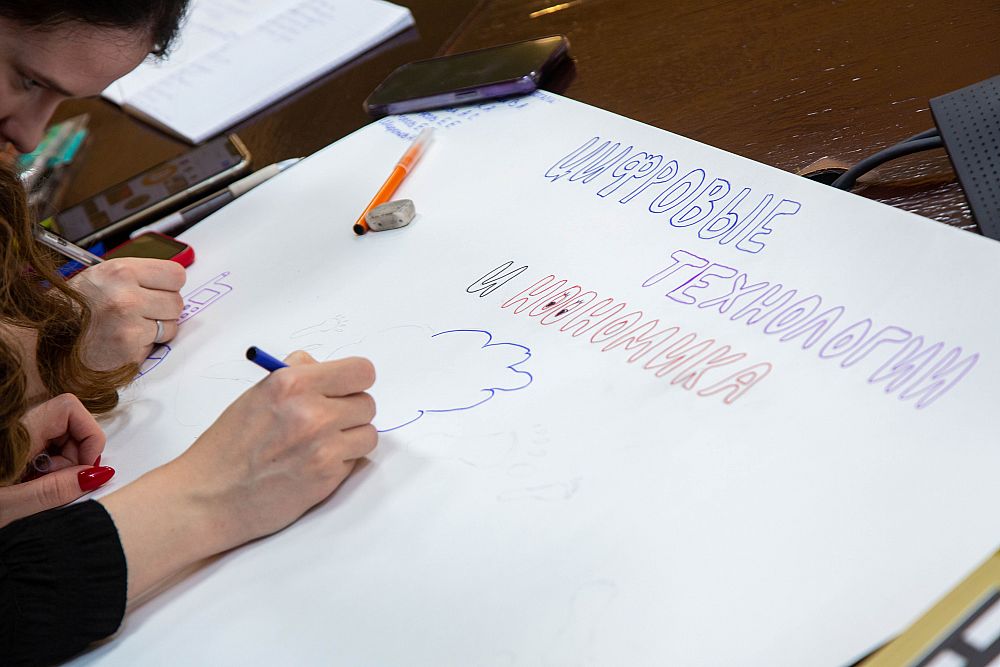 ЦИФРОВЫЕ
ТЕХНОЛОГИИ
И НООНОМИКА